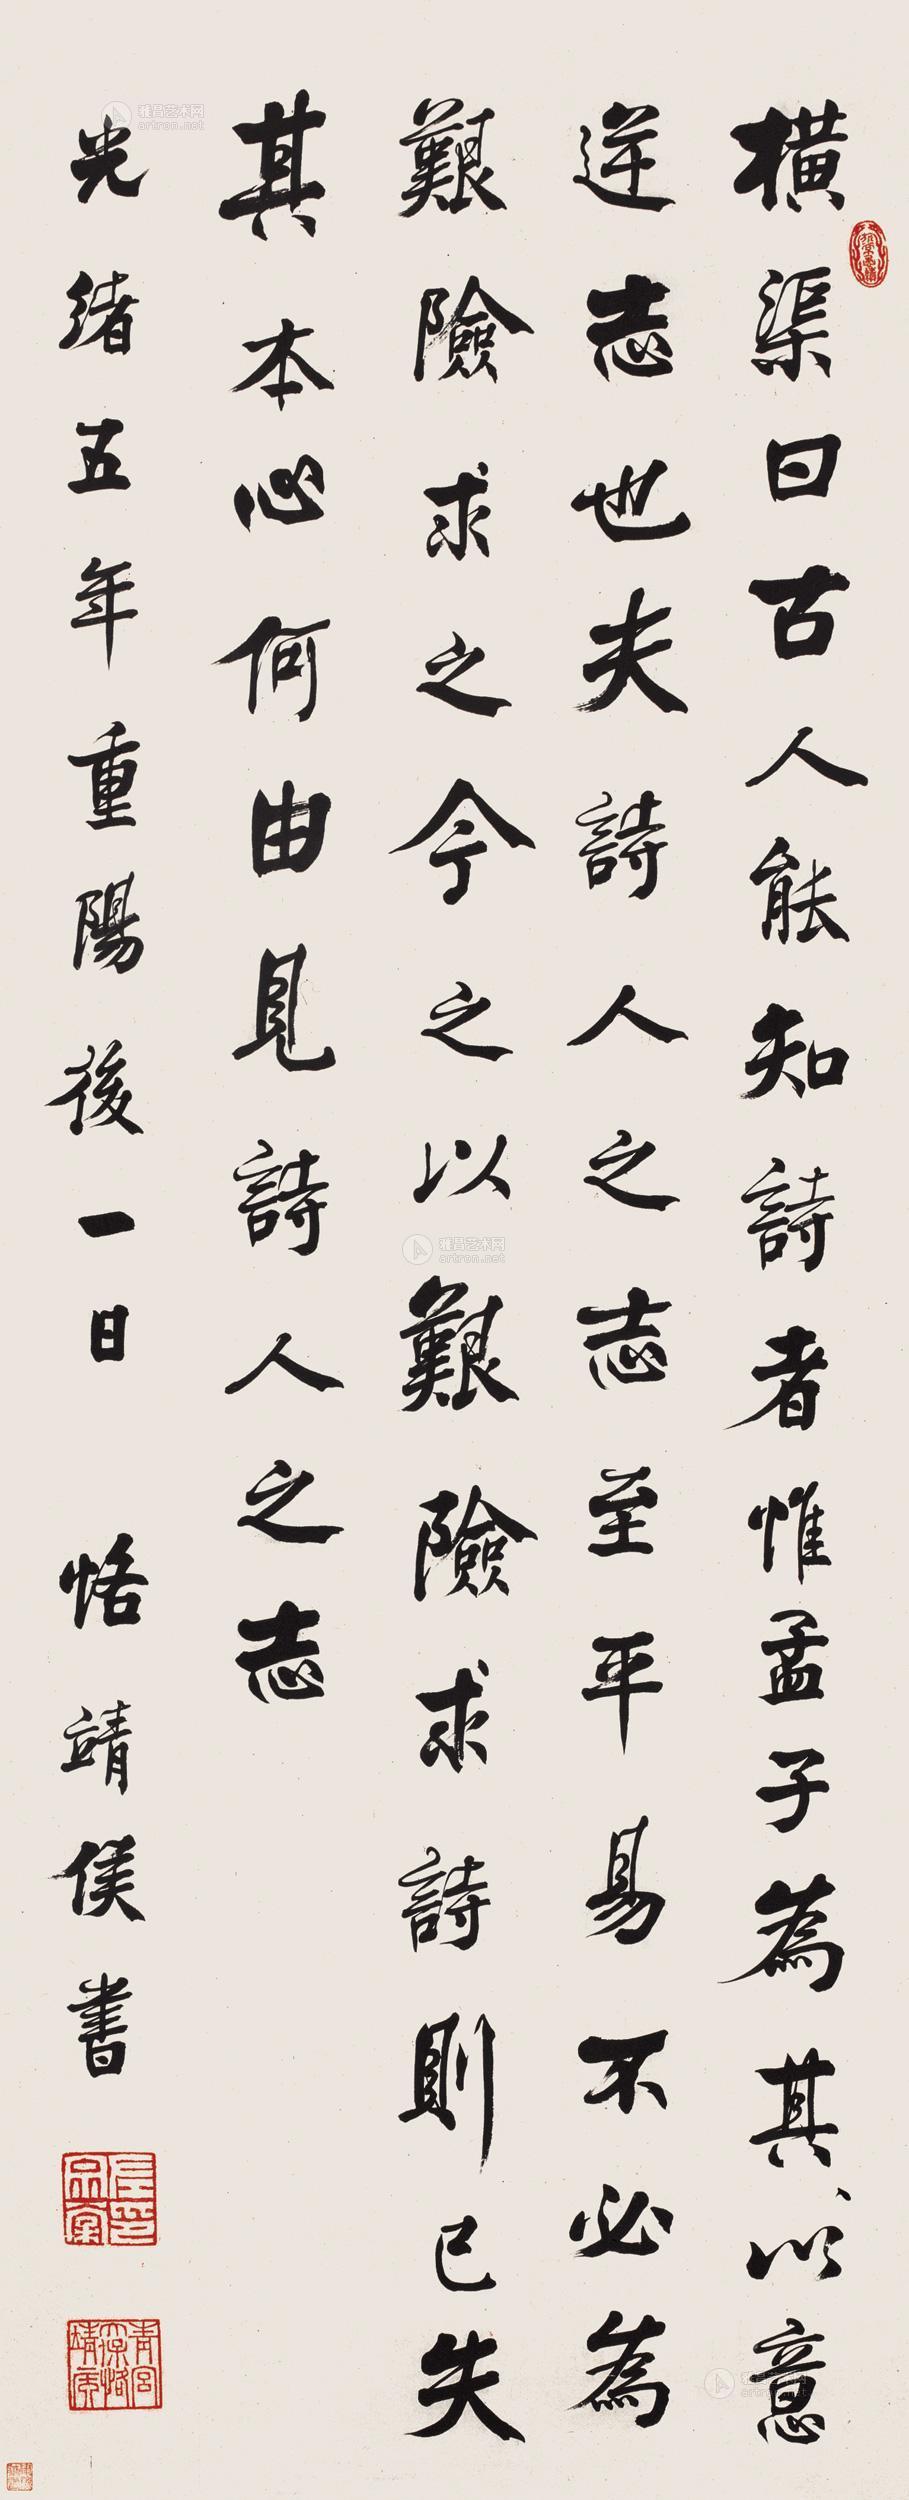 橫渠曰古人能知詩者惟孟子為其以意
逆志也夫詩人之志至平易不必為
艱險求之今之以艱險求詩則已失
其本心何由見詩人之志
光緒五年重陽後一日 恪靖侯書
雅昌艺术网
artron.net
雅昌艺术网
artron.net
雅昌艺术网
artron.net